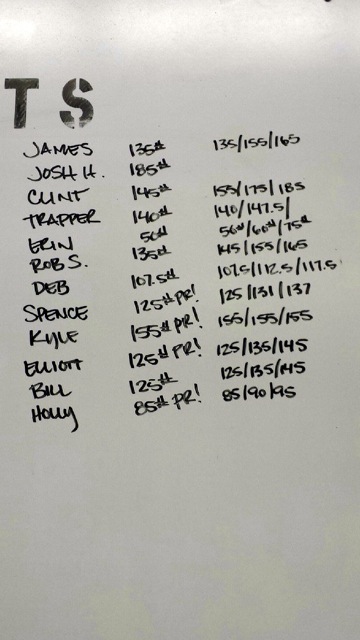 TS
JAMES 135# 135/155/165
JOSH H. 185#
CLINT 145# 155/175/185
TRAPPER 140# 140/147.5/
ERIN 50# 50#/60#/75#
ROB S. 135# 145/155/165
DEB 107.5# 107.5/112.5/117.5
SPENCE 125# PR! 125/131/137
KYLE 155# PR! 155/155/155
ELLIOTT 125# PR! 125/135/145
BILL 125# 125/135/145
HOLLY 85# PR! 85/90/95